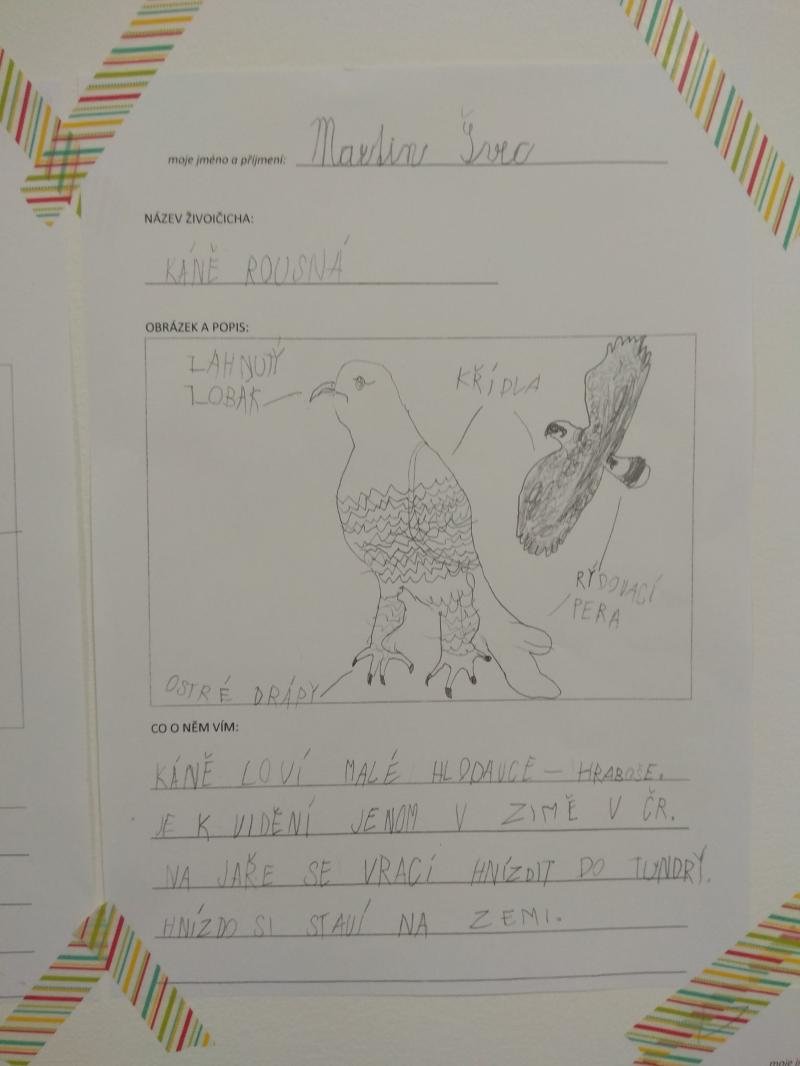 moje jméno a příjmení: Martin Švec
NÁZEV ŽIVOIČICHA:
KÁNĚ ROUSNÁ
OBRÁZEK A POPIS:
ZAHNUTÝ
ZOBÁK
KŘÍDLA
RÝDOVACÍ
PERA
OSTRÉ DRÁPY
CO O NĚM VÍM:
KÁNĚ LOVÍ MALÉ HLODAVCE – HRABOŠE.
JE K VIDĚNÍ JENOM V ZIMĚ V ČR.
NA JAŘE SE VRACÍ HNÍZDIT DO TUNDRY.
HNÍZDO SI STAVÍ NA ZEMI.